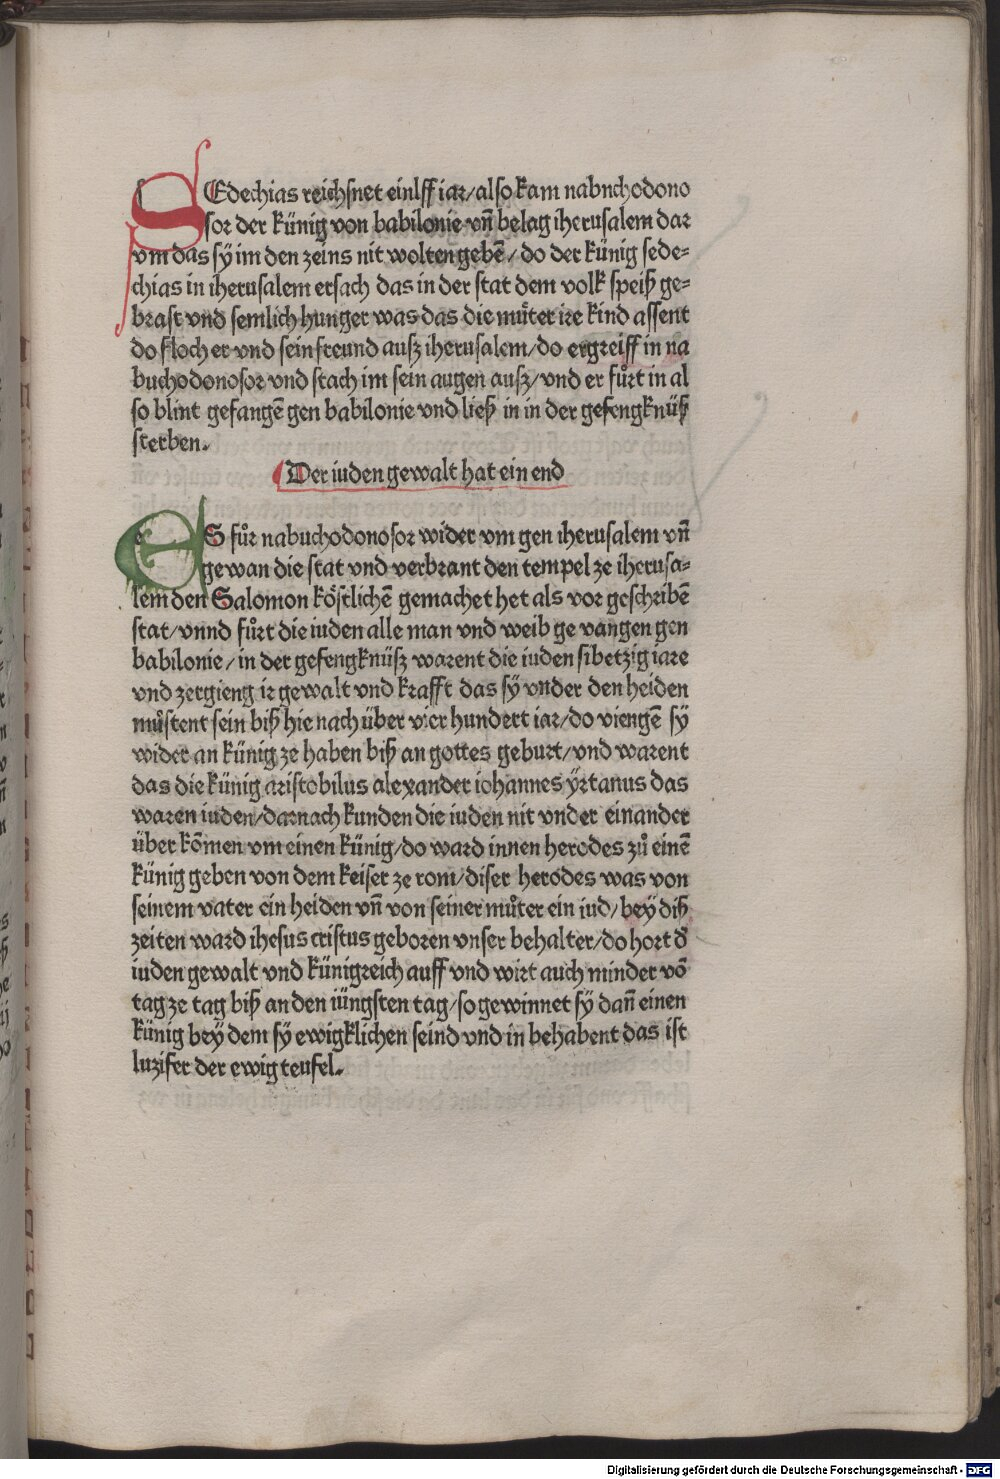 SEdechias reichsnet einlff iar/also kam nabuchodono
sor der künig von babilonie vñ belag iherusalem dar
vm das sÿ im den zeins nit wolten gebē/do der künig sede⸗
chias in iherusalem ersach das in der stat dem volk speiß ge⸗
brast vnd semlich hunger was das die mu̍ter ire kind assent
do floch er vnd sein freund ausz iherusalem/do ergreiff in na
buchodonosor vnd stach im sein augen ausz/vnd er fůrt in al
so blint gefangē gen babilonie vnd ließ in in der gefengknüß
sterben.
Der iuden gewalt hat ein end
ES fůr nabuchodonosor wider vm gen iherusalem vñ
gewan die stat vnd verbrant den tempel ze iherusa⸗
lem den Salomon kőstlichē gemachet het als vor geschribē
stat/vnnd fůrt die iuden alle man vnd weib ge vangen gen
babilonie/in der gefengknüsz warent die iuden sibetzig iare
vnd zergieng ir gewalt vnd krafft das sÿ vnder den heiden
můstent sein biß hie nach über vier hundert iar/do viengē sÿ
wider an künig ze haben biß an gottes geburt/vnd warent
das die künig aristobilus alexander iohannes ÿrtanus das
waren iuden/darnach kunden die iuden nit vnder einander
über kōmen vm einen künig/do ward innen herodes zů einē
künig geben von dem keiser ze rom/diser herodes was von
seinem vater ein heiden vñ von seiner můter ein iud/beÿ diß
zeiten ward ihesus cristus geboren vnser behalter/do hort d̛
iuden gewalt vnd künigreich auff vnd wirt auch minder vō
tag ze tag biß an den iüngsten tag/so gewinnet sÿ dañ einen
künig beÿ dem sÿ ewigklichen seind vnd in behabent das ist
luzifer der ewig teufel.
Digitalisierung gefördert durch die Deutsche Forschungsgemeinschaft - DFG